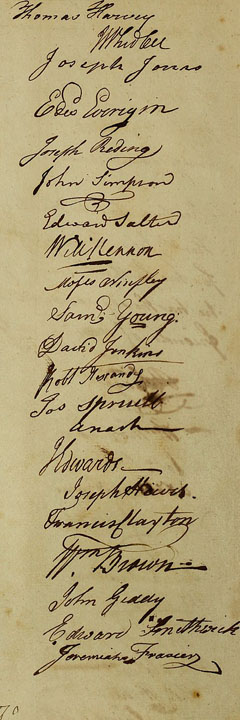 Thomas Harvey
Whidbee
Joseph Jonas
Edwd Everigin
Joseph Reding
John Simpson
Edward Salter
Will Lennon
Moses Winsley
Saml Young
David Jenkins
Robt
Jos Spruill
J Edwards
Joseph Hewes.
Francis Clayton
Wm Brown
John Geddy
Edward Smithwick
Jeremiah Frasier